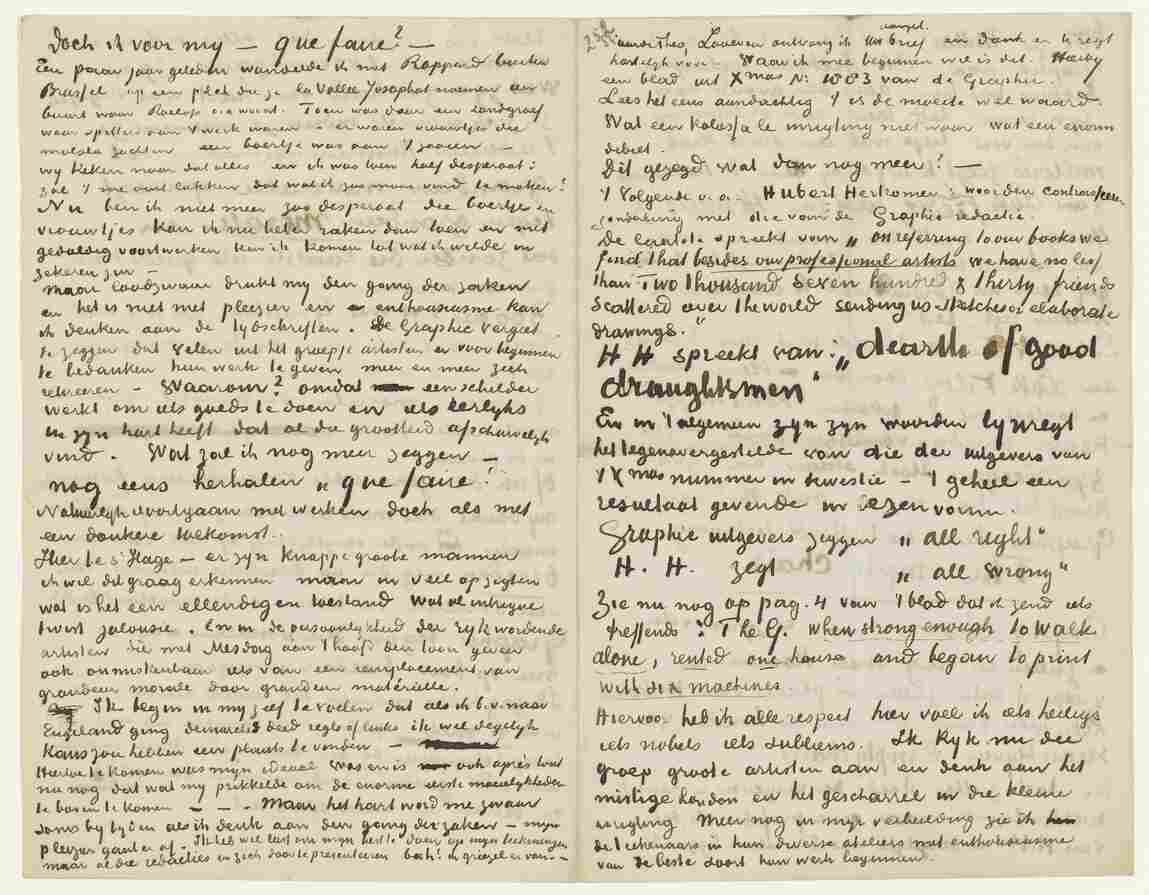 Doch ik voor my — que faire? —
Een paar jaar geleden wandelde ik met Rappard buiten
Brussel op een plek die ze la Vallée Josaphat noemen een
buurt waar Roelofs o.a. woont. Toen was daar een zandgroef
waar spitters aan 't werk waren – er waren vrouwtjes die
molsla zochten een boertje was aan 't zaaien —
wy keken naar dat alles en ik was toen half desperaat:
zal 't me ooit lukken dat wat ik zoo mooi vind te maken?
Nu ben ik niet meer zoo desperaat die boertjes en
vrouwtjes kan ik nu beter raken dan toen en met
geduldig voortwerken kan ik komen tot wat ik wilde in
zekeren zin —
Maar loodzwaar drukt my den gang der zaken
en het is niet met pleizier en enthousiasme kan
ik denken aan de tydschriften. De Graphic vergeet
te zeggen dat velen uit het groepje artisten er voor beginnen
te bedanken hun werk te geven meer en meer zich
retireeren – Waarom? omdat een schilder
werkt om iets goeds te doen en iets eerlyks
in zyn hart heeft dat al die grootheid afschuwelyk
vind. Wat zal ik nog meer zeggen —
nog eens herhalen „que faire?
Natuurlyk doorgaan met werken doch als met
een donkere toekomst.
Hier te s'Hage – er zyn knappe groote mannen
ik wil dit graag erkennen maar in veel opzigten
wat is het een ellendigen toestand Wat al intrigue
twist jalousie. En in de persoonlykheid der ryk wordende
artisten die met Mesdag aan 't hoofd den toon geven
ook onmiskenbaar iets van een remplacement van
grandeur morale door grandeur matérielle.
Ik begin in my zelf te voelen dat als ik b.v. naar
Engeland ging demarches deed regts of links ik wel degelyk
kans zou hebben een plaats te vinden —
Hiertoe te komen was mijn ideaal Was en is ook après tout
nu nog dat wat my prikkelde om de enorme eerste moeielykheden
te boven te komen — — – Maar het hart word me zwaar
soms by tyden als ik denk aan den gang der zaken – myn
pleizier gaat er af. Ik heb wel lust om myn best te doen op myn teekeningen
maar al die redacties en zich daar te presenteeren bah! ik griezel er van –
aanget.
Waarde Theo, Zooeven ontvang ik Uw brief en dank er U regt
hartelyk voor. Waar ik mee beginnen wil is dit. Hierby
een blad uit Xmas No: 1883 van de Graphic.
Lees het eens aandachtig 't is de moeite wel waard.
Wat een kolossale inrigting niet waar wat een enorm
debiet.
Dit gezegd wat dan nog meer? —
't Volgende o.a. Hubert Herkomer's woorden contrasteeren
zonderling met die van de Graphic redactie.
De laatste spreekt van „on referring to our books we
find that besides our professional artists we have no less
than Two thousand Seven hundred & thirty friends
scattered over the world sending us sketches or elaborate
drawings."
H H spreekt van: „dearth of good
draughtsmen"
En in 't algemeen zyn zyn woorden lynregt
het tegenovergestelde van die der uitgevers van
't Xmas nummer in kwestie – 't geheel een
resultaat gevende in dezen vorm.
Graphic uitgevers zeggen „all right"
H. H. zegt „all wrong"
Zie nu nog op pag. 4 van 't blad dat ik zend iets
treffends: The G. when strong enough to walk
alone, rented one house and began to print
with six machines
Hiervoor heb ik alle respect hier voel ik iets heiligs
iets nobels iets subliems. Ik kyk nu die
groep groote artisten aan en denk aan het
mistige London en het gescharrel in die kleine
inrigting Meer nog in myn verbeelding zie ik
de teekenaars in hun diverse ateliers met enthousiasme
van de beste soort hun werk beginnen.